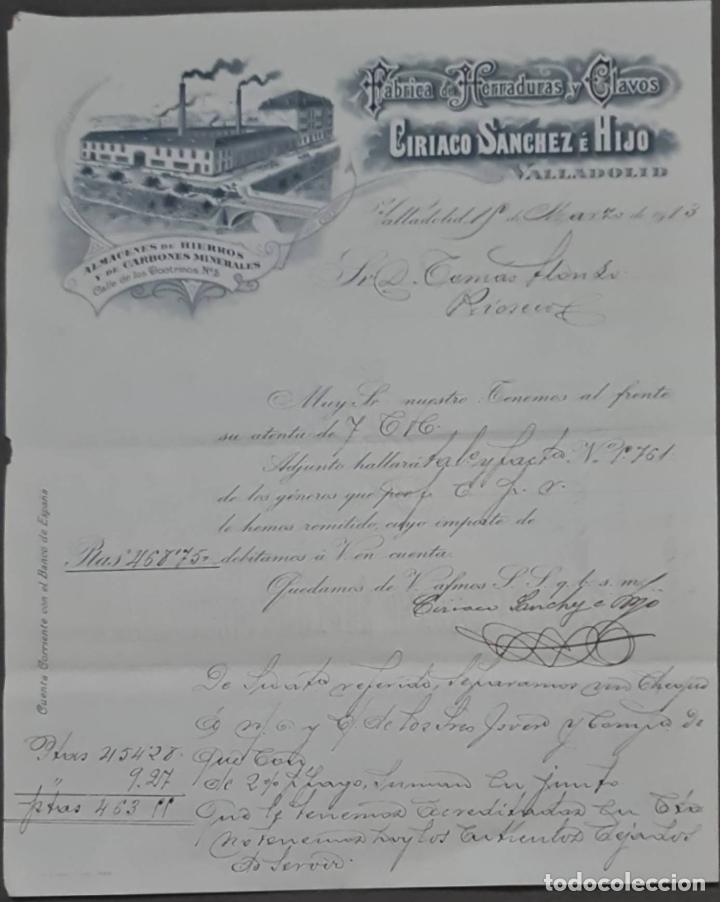 Fábrica de Herraduras y Clavos
CIRIACO SANCHEZ É HIJO
VALLADOLID
ALMACENES DE HIERROS
Y DE CARBONES MINERALES
Calle de los Doctrinos Nº 5
Valladolid 15 de Marzo de 1913
Sr. D. Tomas Alonso
Rioseco
Muy Sr. nuestro: Tenemos al frente
su atenta de 7 Cte.
Adjunto hallará y facta Nº 1º 761
de los géneros que por
le hemos remitido, cuyo importe de
Ptas 468'75 debitamos á V. en cuenta.
Quedamos de V. afmos S. S. q. b. s. m.
Ciriaco Sanchez é Hijo
Cuenta Corriente con el Banco de España
De referida, separamos un cheque
de los Sres Jover y Compa de
Ptas 454 28 que con
" 9.27 de 2% suman en junto
ptas 463 que le tenemos acreditadas en Cta
no tenemos hoy los articulos dejados
de servir.
todocoleccion.net